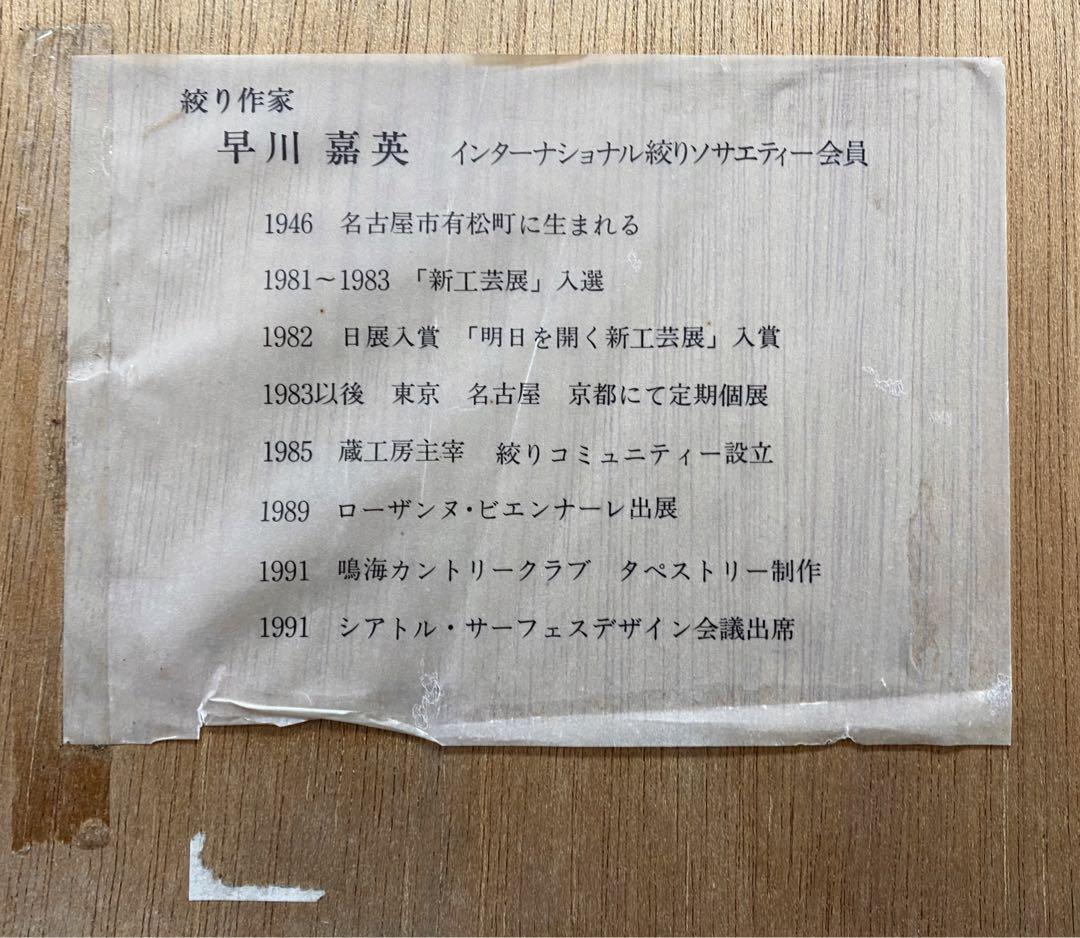 絞り作家
早川 嘉英　インターナショナル絞りソサエティー会員
1946　名古屋市有松町に生まれる
1981～1983　「新工芸展」入選
1982　日展入賞　「明日を開く新工芸展」入賞
1983以後　東京　名古屋　京都にて定期個展
1985　蔵工房主宰　絞りコミュニティー設立
1989　ローザンヌ・ビエンナーレ出展
1991　鳴海カントリークラブ　タペストリー制作
1991　シアトル・サーフェスデザイン会議出席